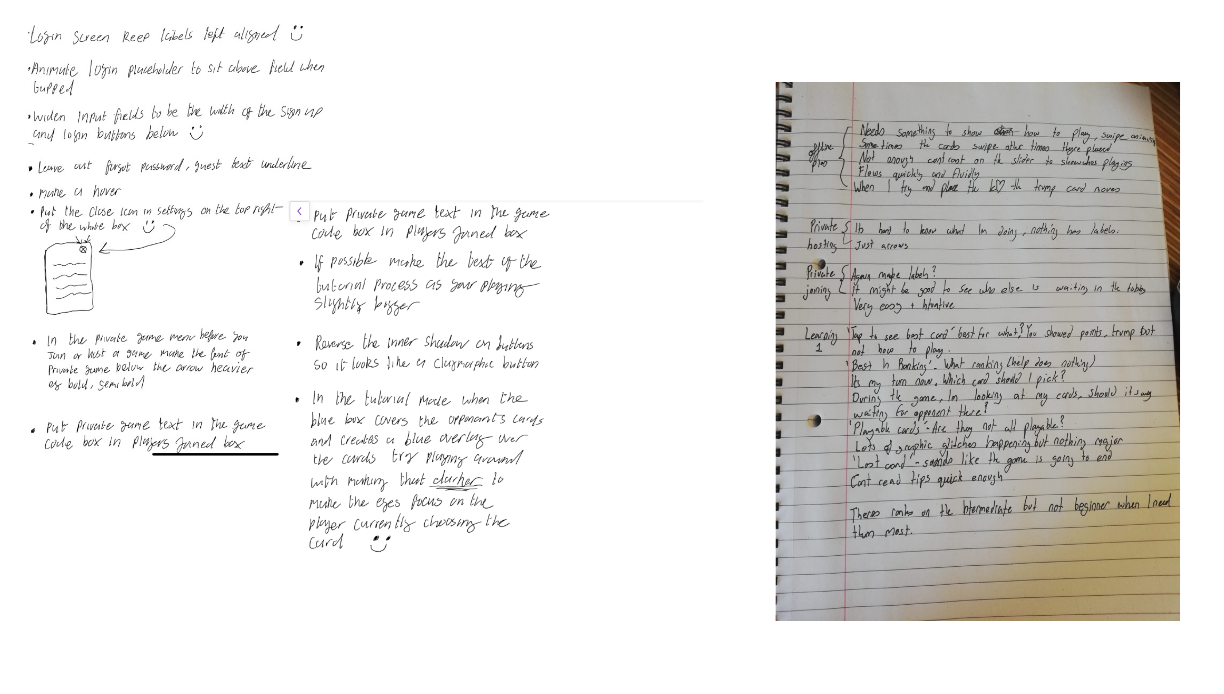 ·Login Screen Keep labels left aligned
·Animate login placeholder to sit above field when
tapped
·widen input fields to be the width of the Sign up
and login buttons below
• Leave out forgot password, guest text underline
• make a hover
• Put the close icon in settings on the top right
of the white box
• In the private game menu before you
Join or host a game make the font of
Private game below the arrow heavier
eg bold, semi bold
• Put Private game text in the game
code box in players Joined box
• Put Private game text in the game
code box in Players Joined box
• If possible make the text of the
tutorial process as your playing
slightly bigger
• Reverse the inner shadow on buttons
so it looks like a claymorphic button
• In the tutorial mode when the
blue box covers the opponant's cards
and creates a blue overlay over
the cards try playing around
with making that darker to
make the eyes focus on the
player currently choosing the
Card
offline
play
Needs something to show how to play, swipe
Sometimes the cards swipe other times theyre placed
Not enough contrast on the slider to show whos playing
Flows quickly and fluidly
When I try and place the the trump card moves
Private
hosting
Its hard to know what Im doing, nothing has labels.
Just arrows
Private
joining
Again maybe labels?
It might be good to see who else is waiting in the lobby
Very easy + intuitive
Learning
1
'Tap to see best card' best for what? You showed points, trump but
not how to play.
'Best in Ranking'- What ranking (help does nothing)
Its my turn now, Which card should I pick?
During the game, Im looking at my cards, should it say
waiting for opponent there?
'Playable cards'- Are they not all playable?
Lots of graphic glitches happening but nothing major
'Lost card' - sounds like the game is going to end
Cant read tips quick enough
Theres ranks on the intermediate but not beginner when I need
them most.